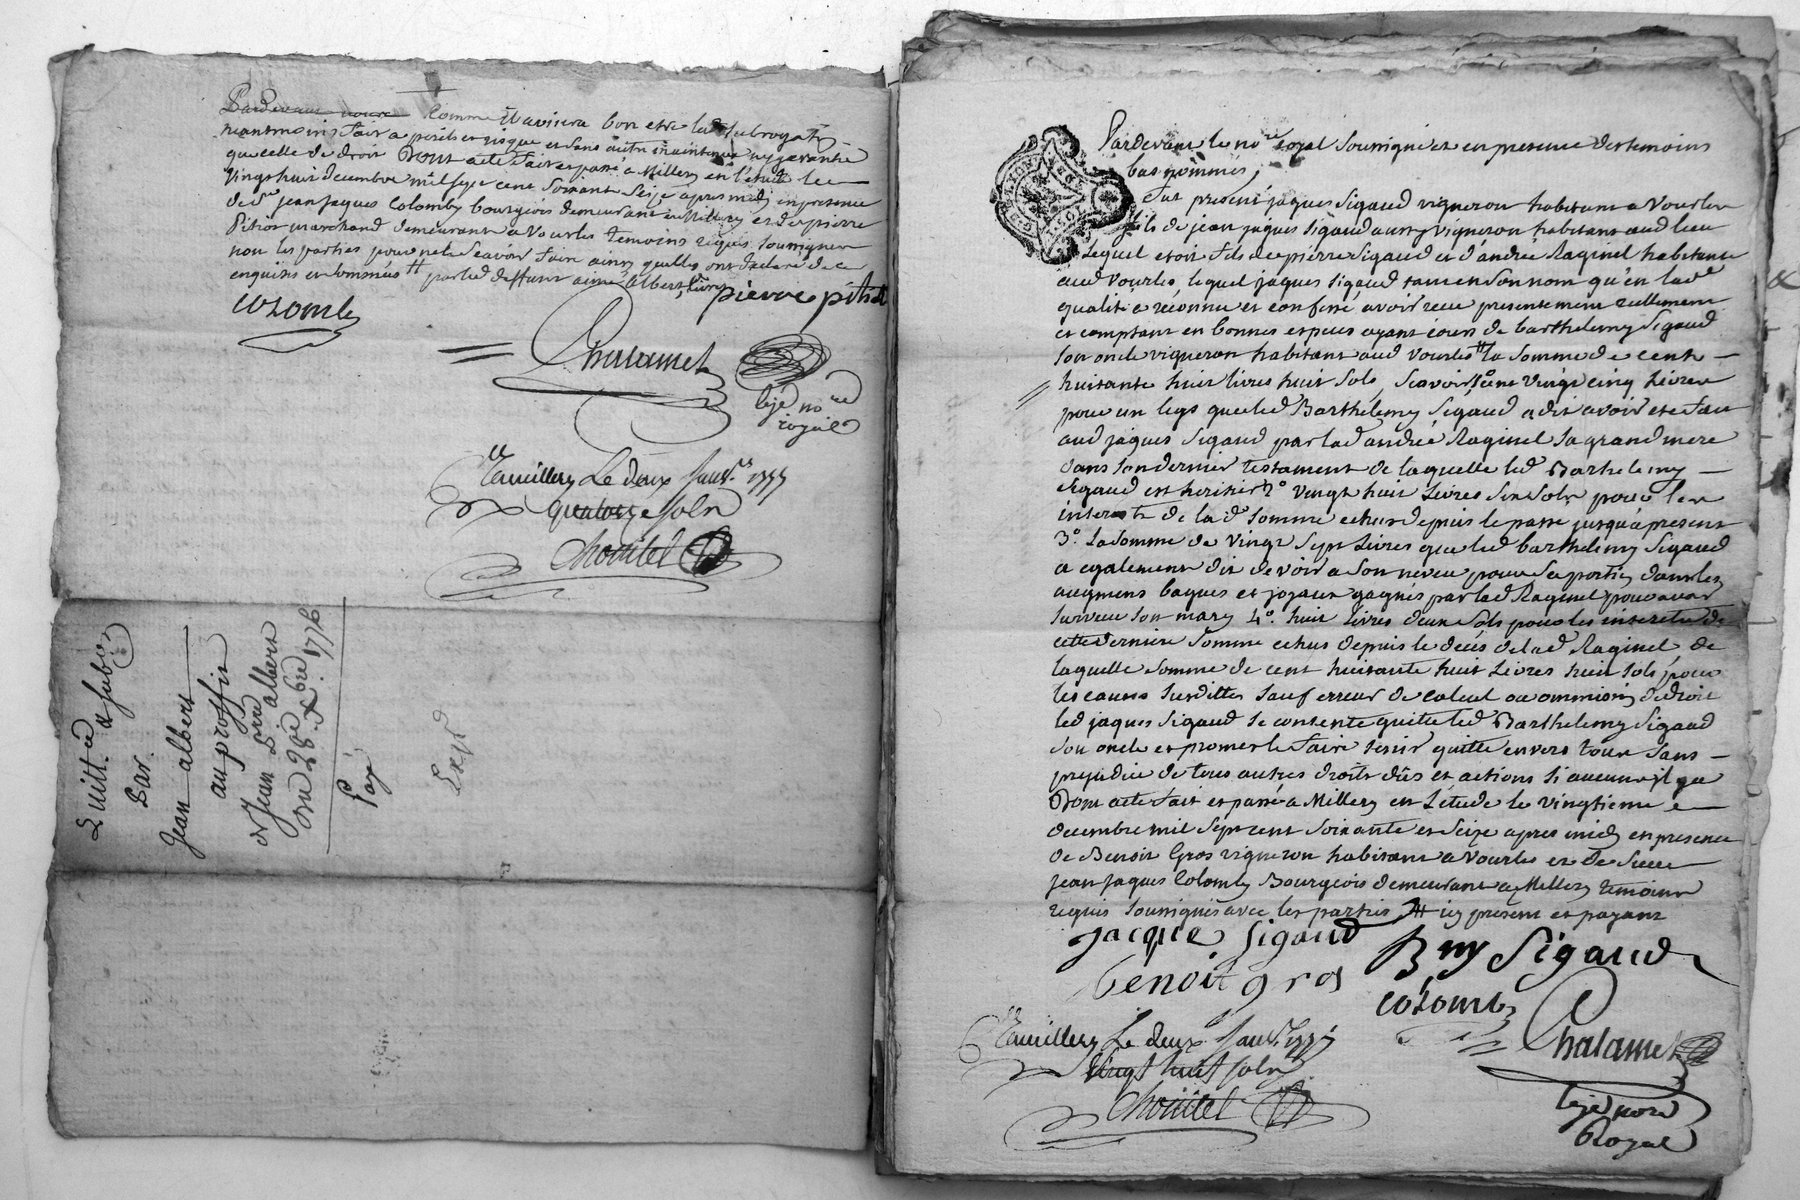 Pardevant notre comme il avisera bon etre lad subrogaõn
neantmoins faite a perils et risque et sans autre maintenue ny garantie
que celle de droit Dont acte fait et passé a Millery en l'étude le
vingt huit decembre mil sept cent soixante seize apres midy en presence
de Sr jean jaques Colomby bourgeois demeurant a Millery et de pierre
Pitiot marchand demeurant a Vourles temoins requis soussignes
non les parties pour ne le scavoir faire ainsy quelles ont declaré de ce
enquises et sommées # par led deffunt aimé albert
colomby
pierre pitiot
Chalamel
lejd nore
royal
Clle a millery Le deux janv. 1777
quatorze sols
Chouitel
Quitt. ce & subon
Par
Jean albert
au proffit
de Jean albert
Du 28e Xbre 1776
Payé
Expd
Pardevant le nore royal soussigné et en presence des temoins
bas nommés,
Fut present jaques Sigaud vigneron habitant a Vourles
fils de jean jaques Sigaud aussy vigneron habitant aud lieu
Lequel etoit fils de pierre Sigaud et d'andrée Raginel habitants
aud Vourles, lequel jaques Sigaud tant en son nom qu'en lad
qualité a réconnu et confessé avoir reçu presentement réellement
et comptant en bonnes espèces ayant cours de barthelemy Sigaud
son oncle vigneron habitant aud Vourles # la somme de cent
huitante huit livres huit sols, Scavoir 1o cent vingt cinq livres
pour un legs que led Barthelemy Sigaud a dit avoir eté fait
aud jaques Sigaud par lad andrée Raginel sa grand mere
dans son dernier testament de laquelle led Barthelemy
Sigaud est heritier 2o vingt huit Livres six sols pour les
interets de lad somme echus depuis le passé jusqu'à present
3o. La somme de vingt sept Livres que led barthelemy Sigaud
a egalement dit devoir a son neveu pour sa portion dans les
augmens bagues et joyaux gagnés par lad Raginel pour avoir
survecu son mary 4o. huit Livres deux sols pour les interets de
cette derniere somme echus depuis le décés de lad Raginel, de
laquelle somme de cent huitante huit Livres huit sols, pour
les causes susdittes sauf erreur de calcul ou ommission de droit
led jaques Sigaud se contente quitte led Barthelemy Sigaud
son oncle et promet le faire tenir quitte envers tous sans
prejudice de tous autres droits dûs et actions si aucuns il y a
Dont acte fait et passé a Millery en L'étude le vingtieme
decembre mil sept cent soixante et seize apres midy en presence
de Benoit Gros vigneron habitant a Vourles et de Sieur
jean jaques Colomby Bourgeois demeurant a Millery temoins
requis soussignés avec les parties # icy present et payant
jacque sigaud
Bmy Sigaud
benoit gros
colomby
Chalamel
lejd nore
Royal
Clle a millery Le deux janv. 1777
Vingt huit sols
Chouitel